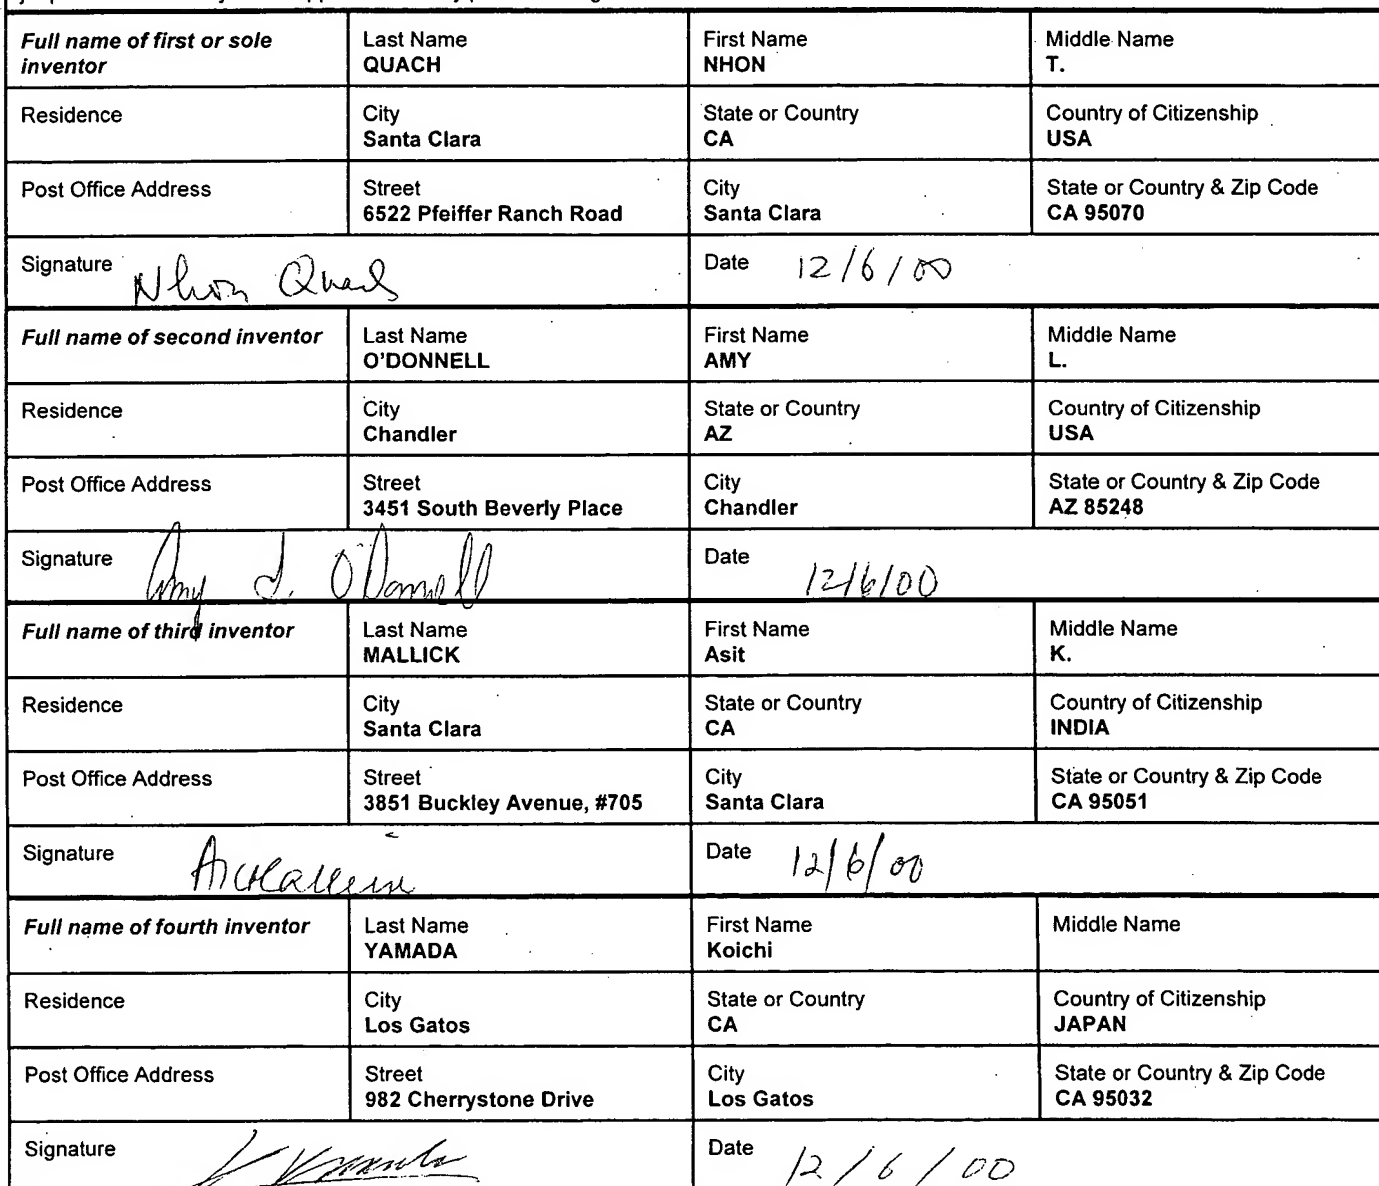 Full name of first or sole inventor
Last Name
QUACH
First Name
NHON
Middle Name
T.
Residence
City
Santa Clara
State or Country
CA
Country of Citizenship
USA
Post Office Address
Street
6522 Pfeiffer Ranch Road
City
Santa Clara
State or Country & Zip Code
CA 95070
Signature Nhon Quach
Date 12/6/00
Full name of second inventor
Last Name
O'DONNELL
First Name
AMY
Middle Name
L.
Residence
City
Chandler
State or Country
AZ
Country of Citizenship
USA
Post Office Address
Street
3451 South Beverly Place
City
Chandler
State or Country & Zip Code
AZ 85248
Signature Amy L. O'Donnell
Date 12/6/00
Full name of third inventor
Last Name
MALLICK
First Name
Asit
Middle Name
K.
Residence
City
Santa Clara
State or Country
CA
Country of Citizenship
INDIA
Post Office Address
Street
3851 Buckley Avenue, #705
City
Santa Clara
State or Country & Zip Code
CA 95051
Signature
Date 12/6/00
Full name of fourth inventor
Last Name
YAMADA
First Name
Koichi
Middle Name
Residence
City
Los Gatos
State or Country
CA
Country of Citizenship
JAPAN
Post Office Address
Street
982 Cherrystone Drive
City
Los Gatos
State or Country & Zip Code
CA 95032
Signature
Date 12/6/00